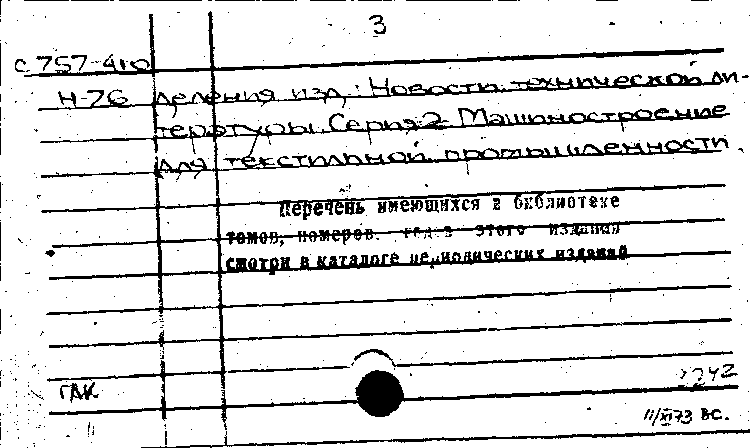 3
С 757-410
Н-76 деления изд.: Новости технической ли-
тературы. Серия 2. Машиностроение
для текстильной промышленности.
Перечень имеющихся в библиотеке
томов, номеров, годов этого издания
смотри в каталоге периодических изданий
ГАК
242
11/XI73 ВС.